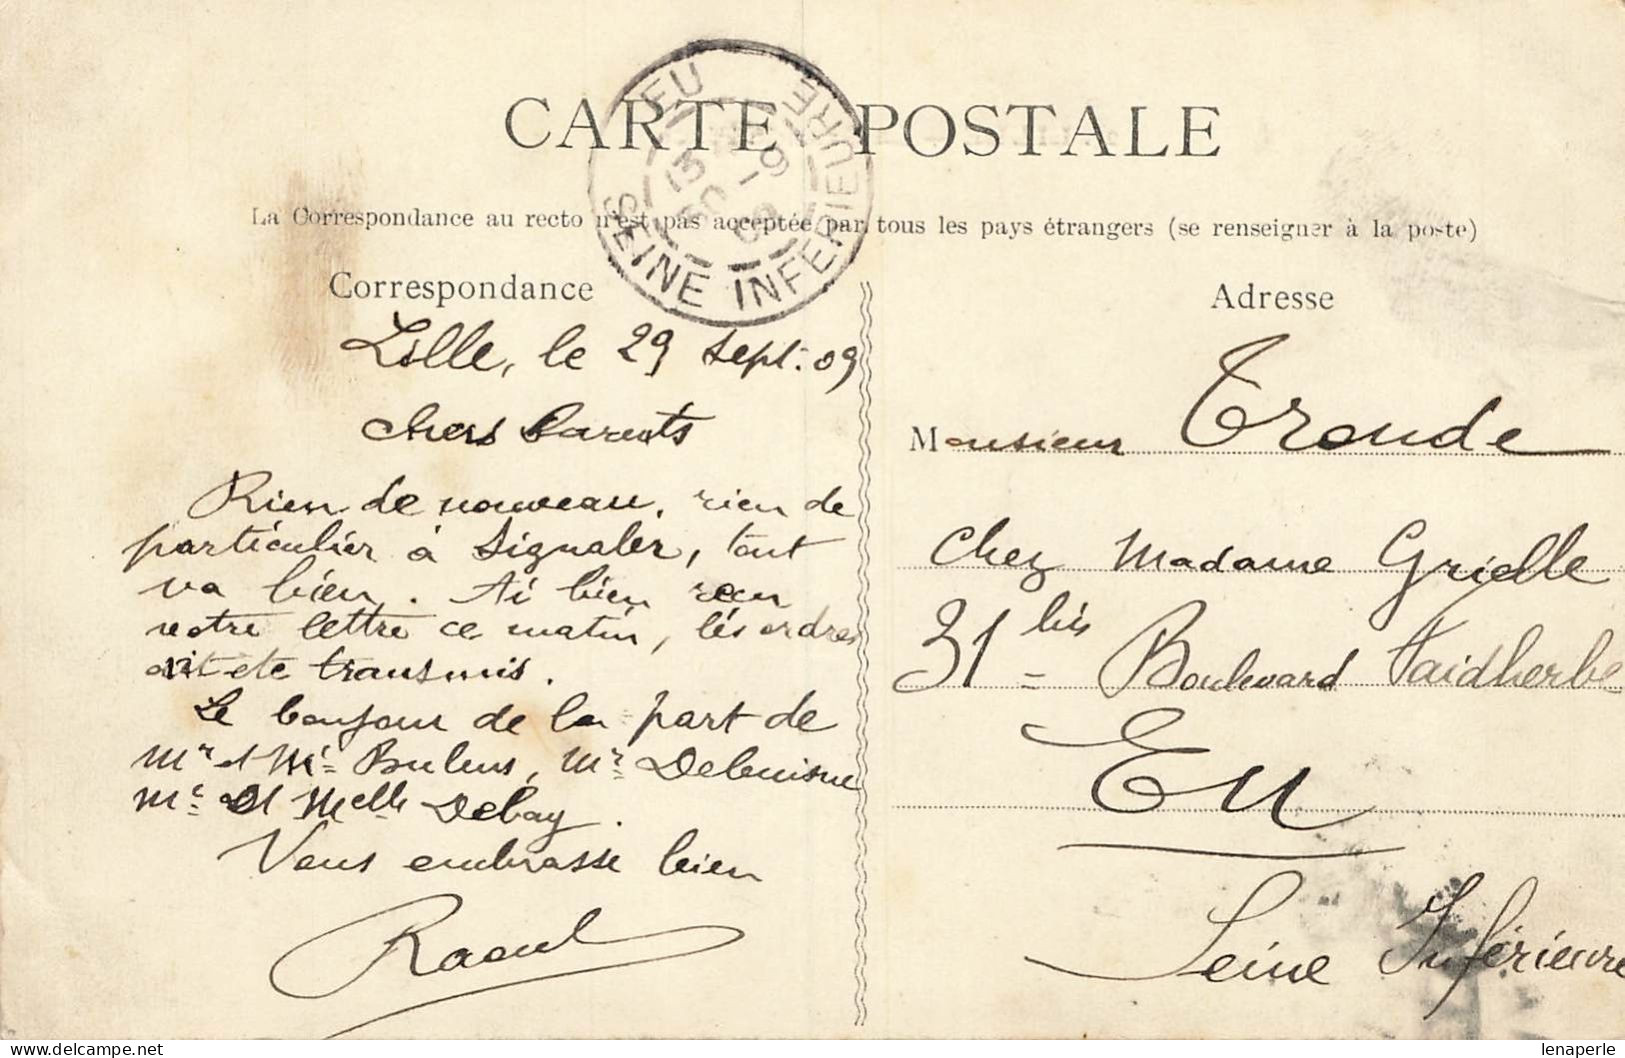 CARTE POSTALE
La Correspondance au recto n'est pas acceptée par tous les pays étrangers (se renseigner à la poste)
EU
SEINE INFERIEURE
30 -9
09
Correspondance
Lille, le 29 Sept. 09
Chers Parents
Rien de nouveau, rien de
particulier à Signaler, tout
va bien. Ai bien reçu
votre lettre ce matin, les ordres
ont ete transmis.
Le bonjour de la part de
Mr et Me
Mr
Me et Melle Debay.
Vous embrasse bien
Raoul
Adresse
Monsieur Tronde
Chez Madame Grielle
31 bis Boulevard Faidherbe
EU
Seine Inférieure
lenaperle